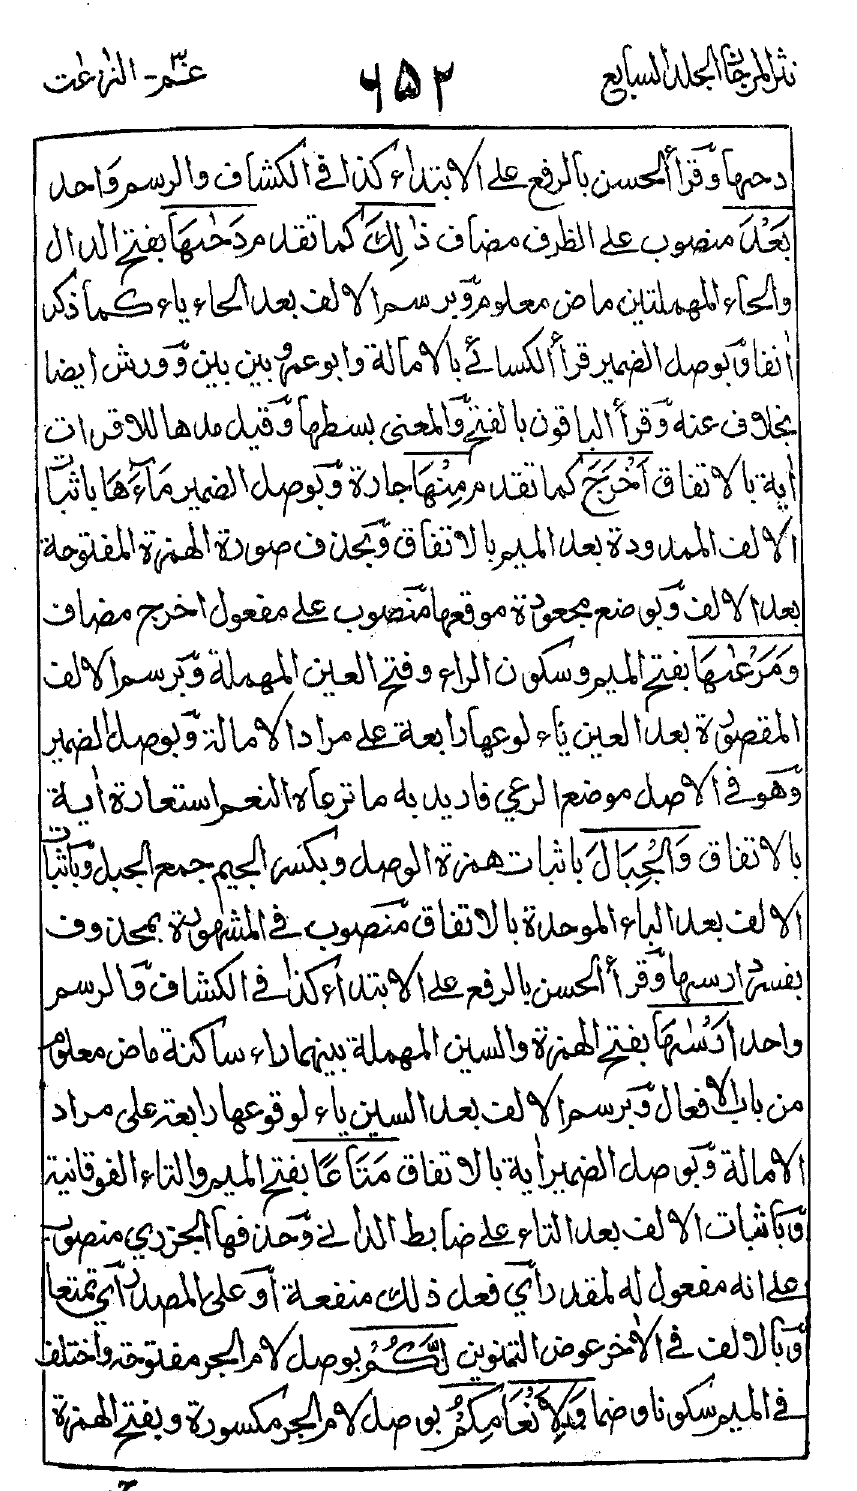 نثر المرجان الجلد السابع
٦٥٢
عمّ - النزعت
دحىها وقرأ الحسن بالرفع على الابتداء كذا في الكشاف والرسم واحد
بَعْدَ منصوب على الظرف مضاف ذٰلِكَ كما تقدم دَحٰىهَا بفتح الدال
والحاء المهملتين ماض معلوم وبرسم الالف بعد الحاء ياء كما ذكر
اتفاق بوصل الضمير قرأ الكسائي بالامالة وابو عمرو بين بين وورش ايضا
بخلاف عنه وقرأ الباقون بالفتح والمعنى بسطها وقيل مدها للاقرات
اٰية بالاتفاق اَخْرَجَ كما تقدم مِنْهَا جارة وبوصل الضمير مَآءَهَا باثبات
الالف الممدودة بعد الميم بالاتفاق وبحذف صورة الهمزة المفتوحة
بعد الالف وبوضع مجعودة موقعها منصوب على مفعول اخرج مضاف
وَمَرْعٰىهَا بفتح الميم وسكون الراء وفتح العين المهملة وبرسم الالف
المقصورة بعد العين ياء لوقوعها رابعة على مراد الامالة وبوصل الضمير
وهو في الاصل موضع الرعي فاريد به ما ترعاه النعم استعارة اٰية
بالاتفاق وَالْجِبَالَ باثبات همزة الوصل وبكسر الجيم جمع الجبل وباثبات
الالف بعد الباء الموحدة بالاتفاق منصوب في المشهورة بمحذوف
يفسره ارسها وقرأ الحسن بالرفع على الابتداء كذا في الكشاف والرسم
واحد اَرْسٰىهَا بفتح الهمزة والسين المهملة بينهما راء ساكنة ماض معلوم
من باب الافعال وبرسم الالف بعد السين ياء لوقوعها رابعة على مراد
الامالة وبوصل الضمير اٰية بالاتفاق مَتَاعًا بفتح الميم والتاء الفوقانية
وباثبات الالف بعد التاء على ضابط الداني وحذفها الجزري منصوب
على انه مفعول له لمقدر أي فعل ذلك منفعة أو على المصدر أي تمتعا
وبالالف في الاٰخر عوض التنوين لَّكُمْ بوصل لام الجر مفتوحة واختلف
في الميم سكونا وضما وَلِاَنْعَامِكُمْ بوصل لام الجر مكسورة وبفتح الهمزة